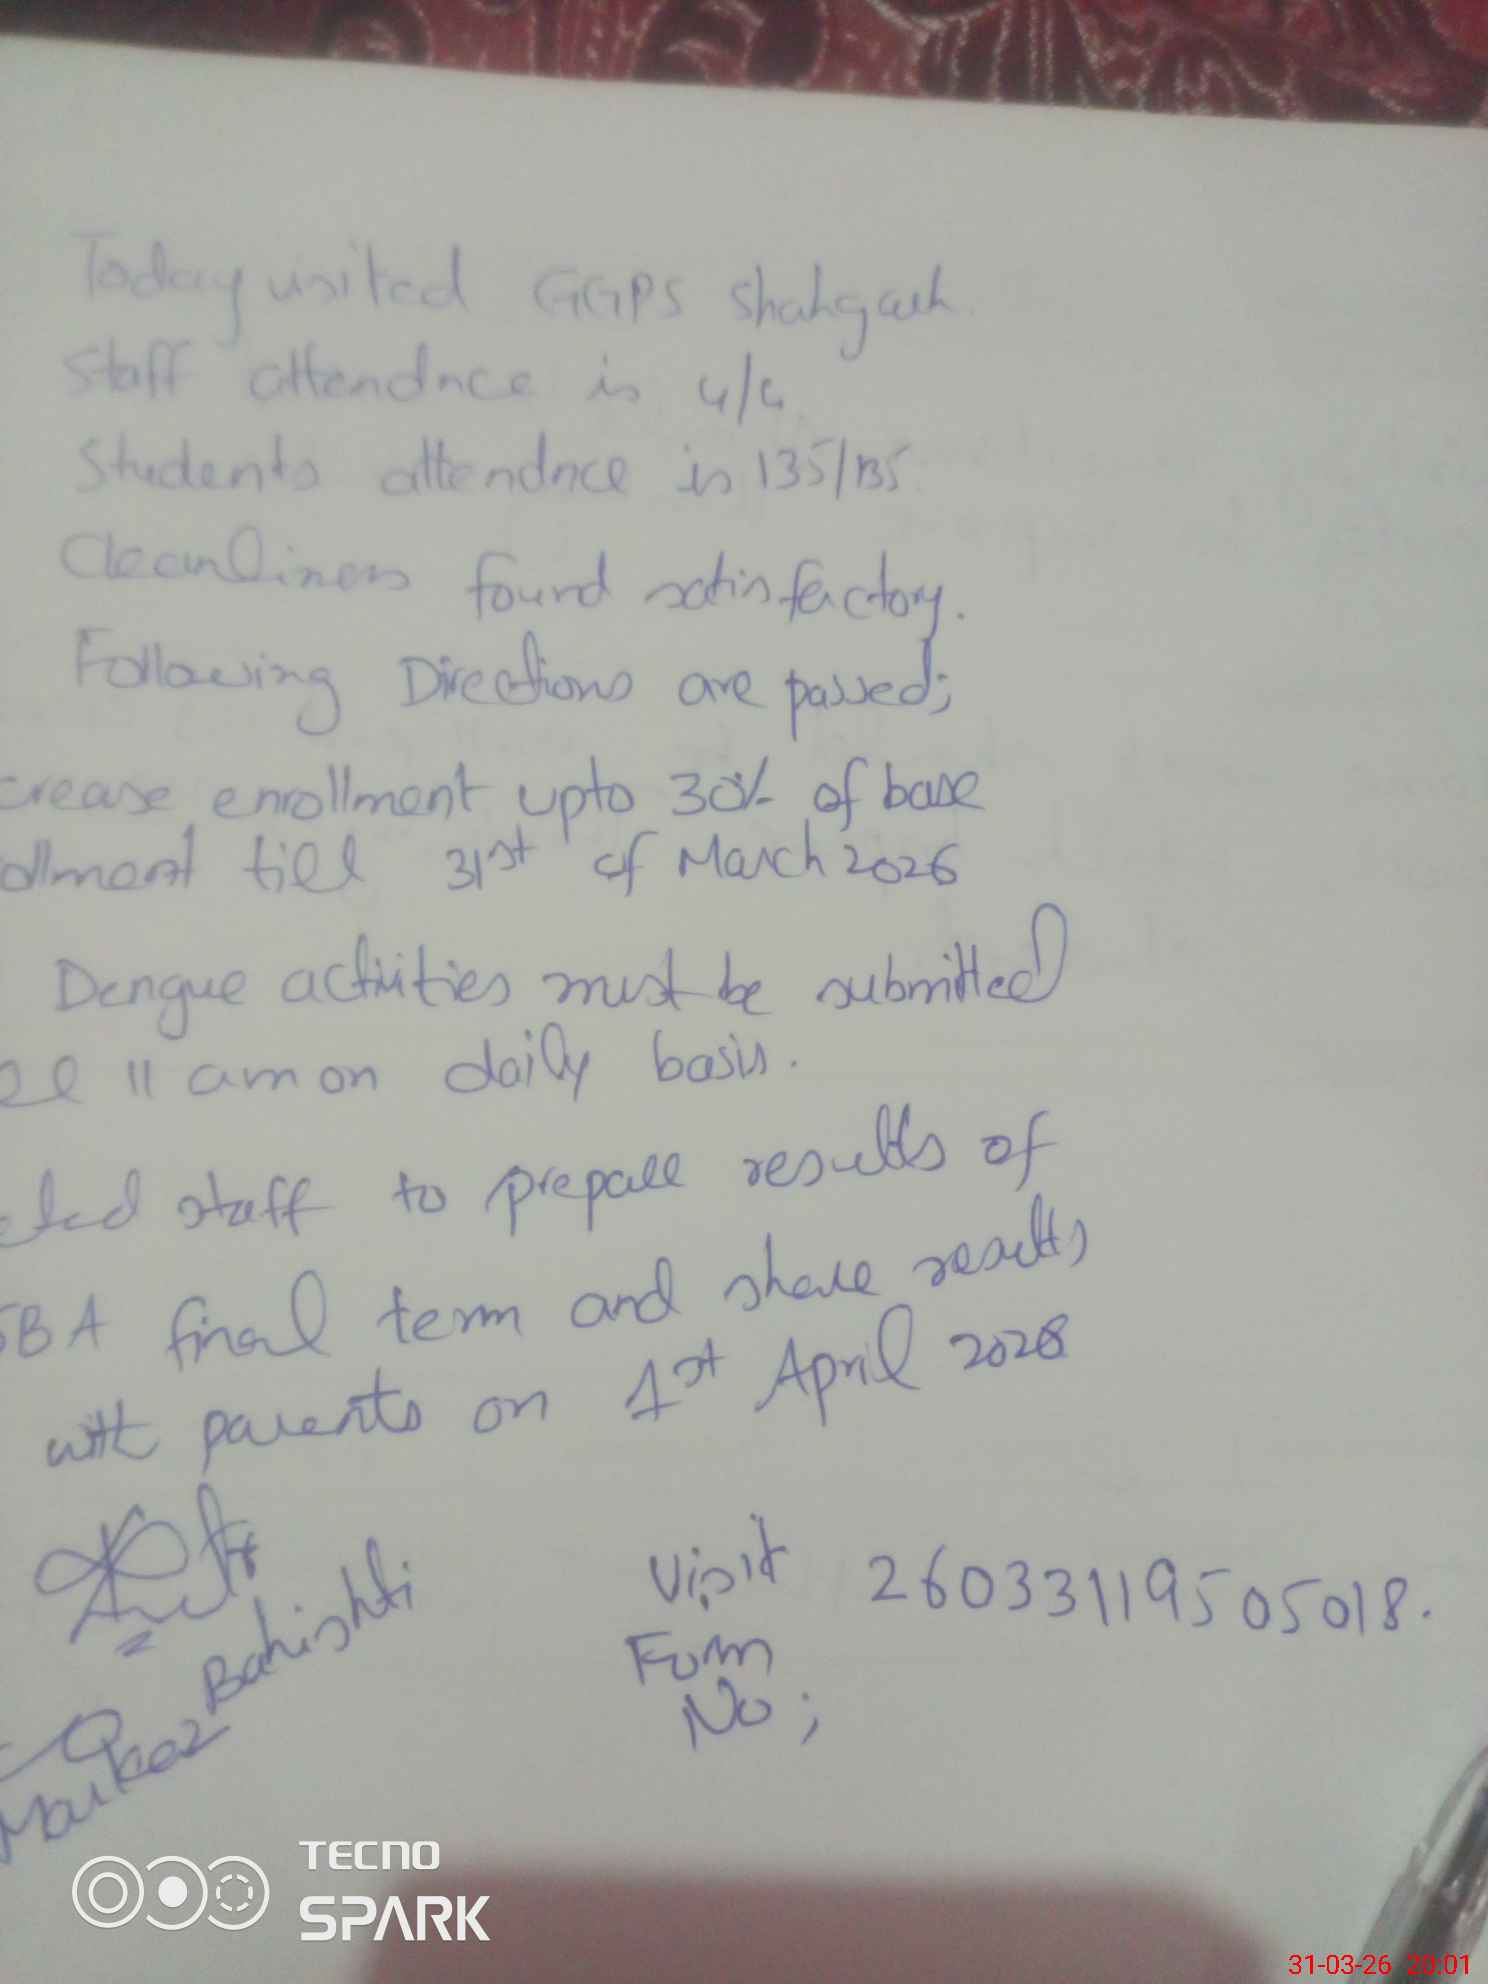 Today visited GGPS Shahgarh.
Staff attendnce is 4/4
Students attendnce is 135/135.
Cleanliness found satisfactory.
Following Directions are passed;
crease enrollment upto 30% of base
ollment till 31st of March 2026
Dengue activities must be submitted
11 am on daily basis.
cted staff to prepare results of
SBA final term and share results
with parents on 1st April 2026
Bahishti
Markaz
Visit 26033119505018.
Form
No;
TECNO
SPARK
31-03-26 20:01